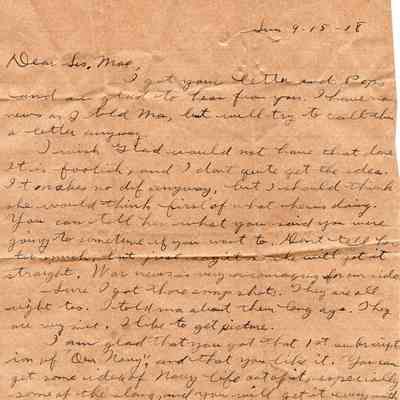 Sun 9-15-18
Dear Sis, Mae,
I got your letter and Pops
and am glad to hear from you. I have no
news as I told Ma, but will try to call this
a letter anyway.
I wish Glad would not have that done
It is foolish, and I don't quite get the idea.
It makes no dif anyway, but I should think
she would think first of what she is doing.
You can tell her what you said you were
going to sometime if you want to. Don't tell her
too much, but just get it
straight. War news is very encouraging for our side.
Sure I got those snapshots. They are all
right too. I told ma about them long ago. They
are very nice. I like to get pictures.
I am glad that you got that 1st subscript
ion of "Our Navy", and that you like it. You can
get some idea of Navy life out of it, especially
some of the slang, and you will get it every month